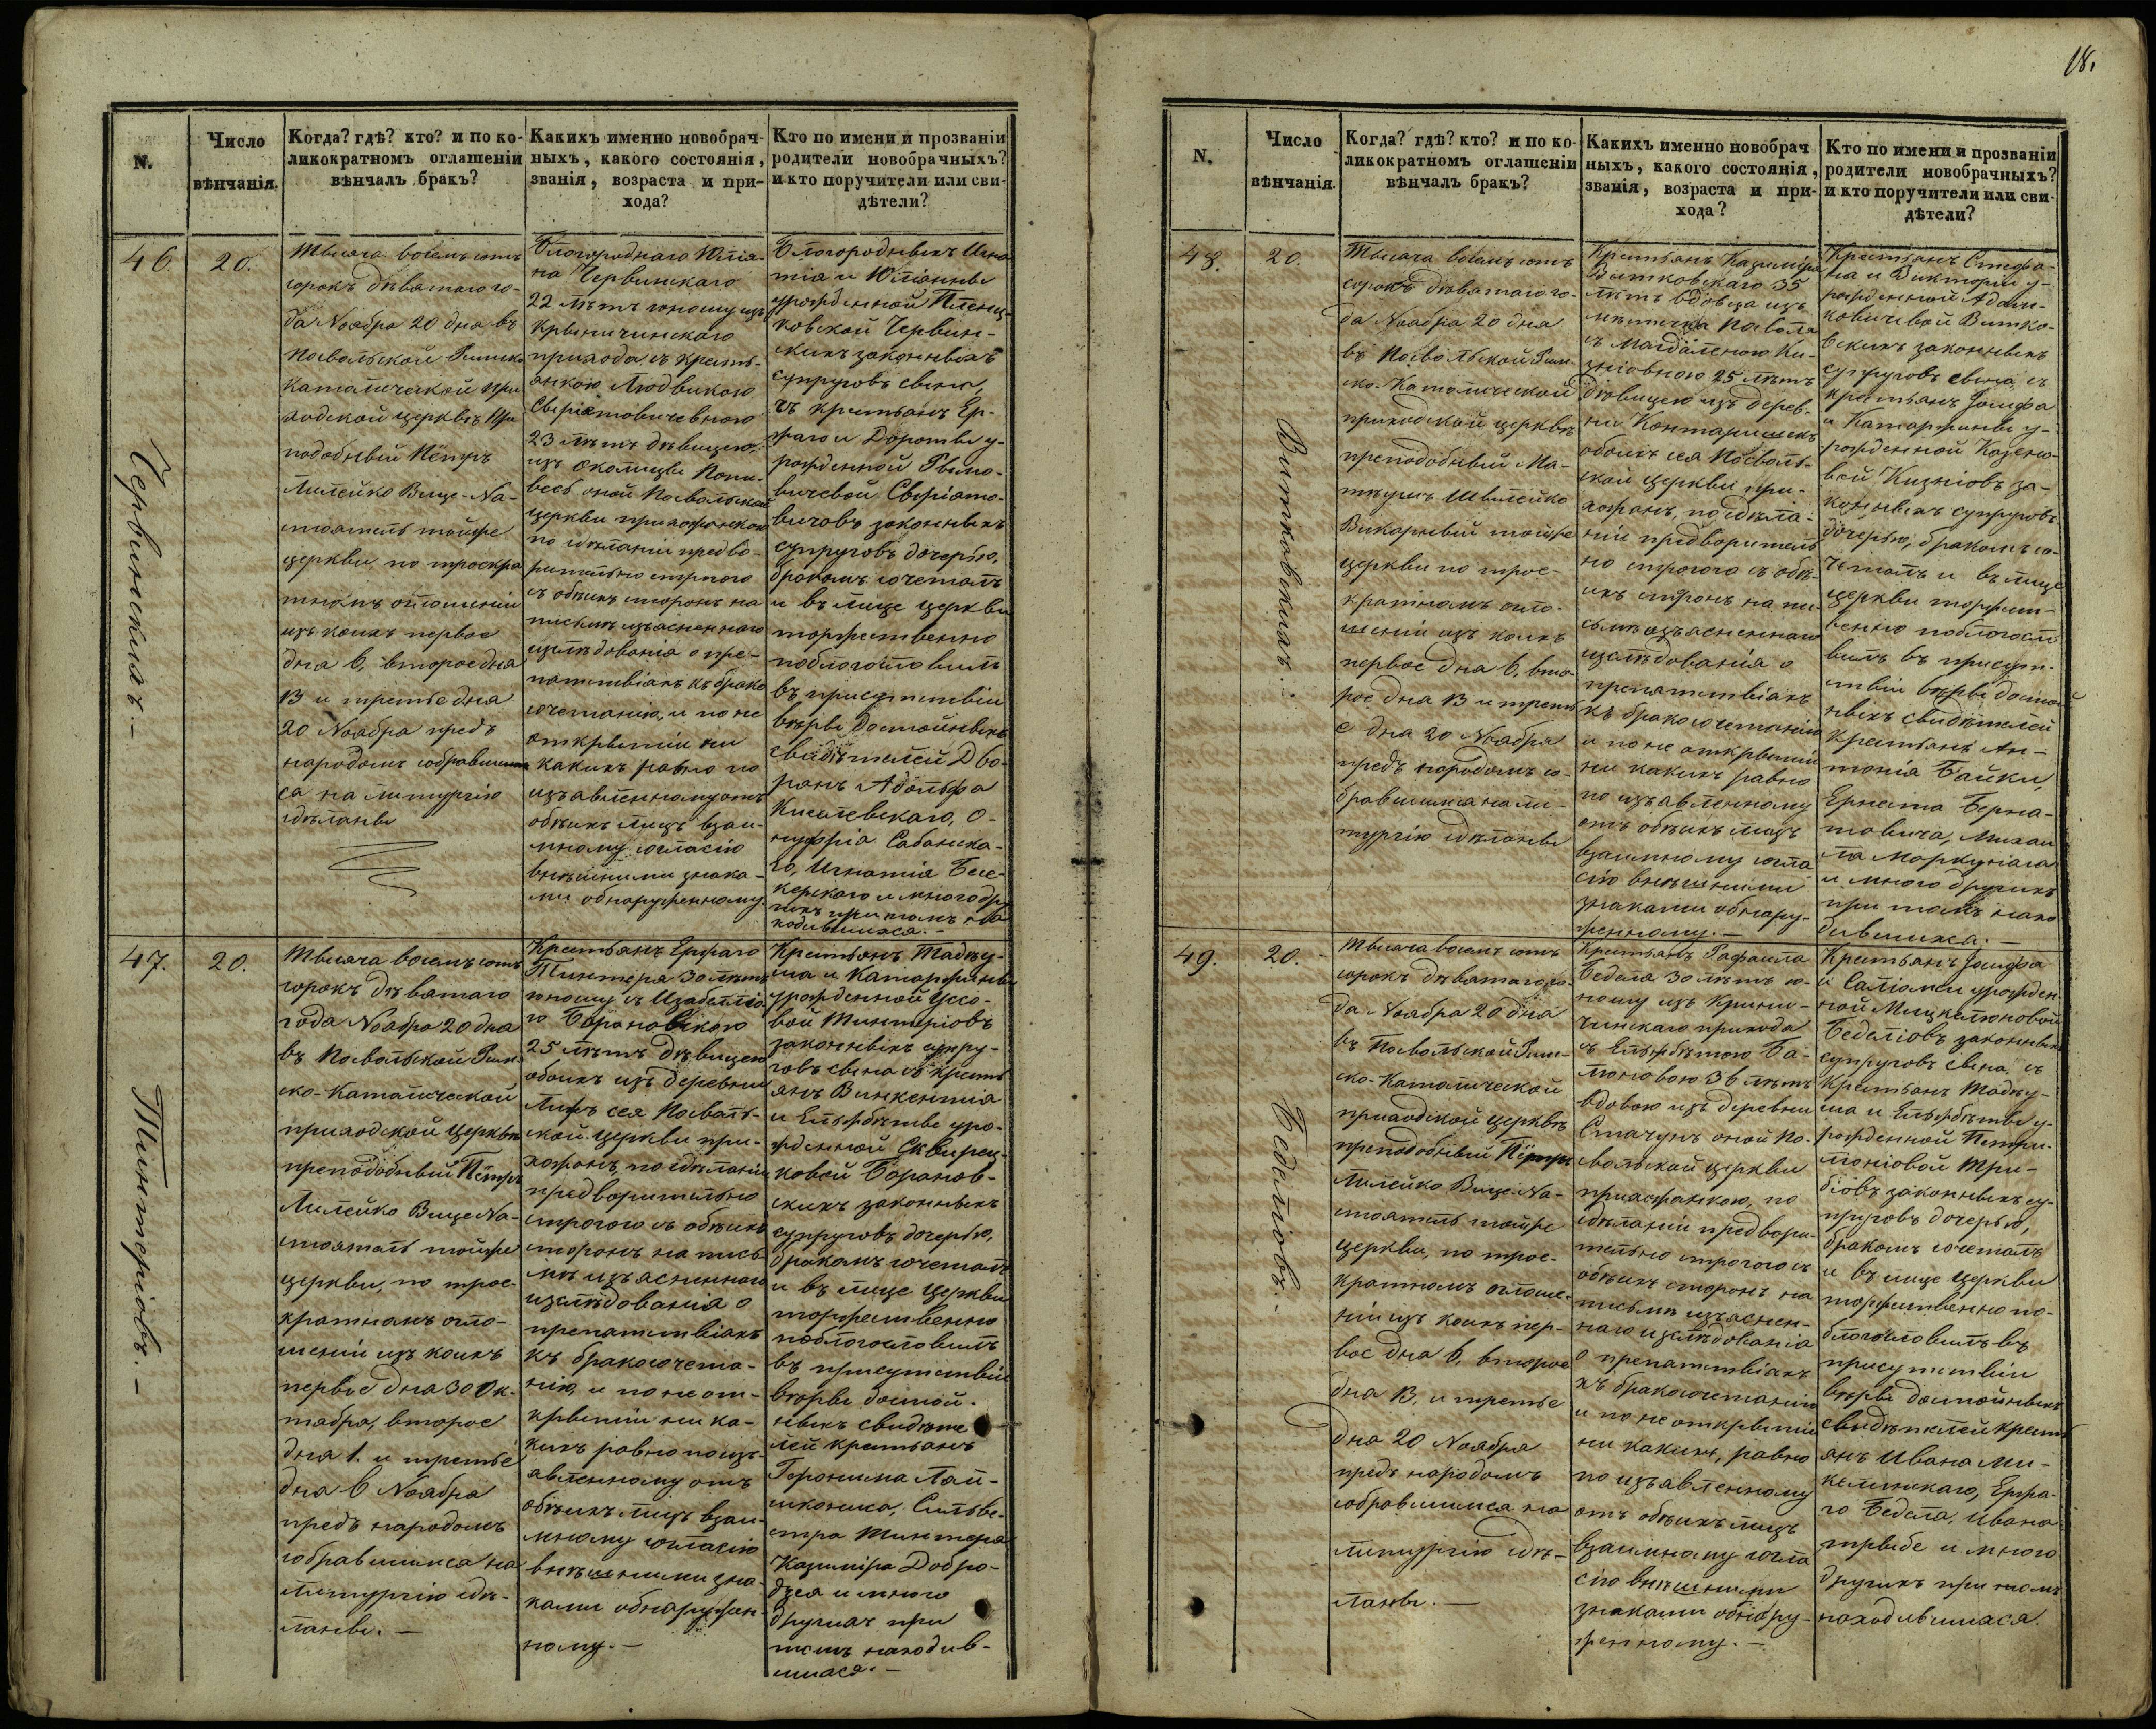 18.
N.
Число
вѣнчанія.
Когда? гдѣ? кто? и по ко-
ликократномъ оглашеніи
вѣнчалъ бракъ?
Какихъ именно новобрач-
ныхъ, какого состоянія,
званія, возраста и при-
хода?
Кто по имени и прозваніи
родители новобрачныхъ?
и кто поручители или сви-
дѣтели?
46.
20.
Червинскихъ. —
Тысяча восемь сотъ
сорокъ девятаго го-
да Ноября 20 дня въ
Посвольской Римско
Католической при
ходской церквѣ Пре
подобный Пётръ
Лилейко Вице-На-
стоятель тойже
церкви по троекра
тномъ оглашеніи
изъ коихъ первое
дня 6, второе дня
13 и третье дня
20 Ноября предъ
народомъ собравшим
ся на литургію
сдѣланы
Благороднаго Юліа-
на Червинскаго
22 лѣтъ юношу изъ
Крыничинскаго
прихода съ кресть-
янкою Людвикою
23 лѣтъ дѣвицею,
изъ околицы Попи-
весь оной Посвольской
церкви прихожанкою
по сдѣланіи предва-
рительно строгого
съ обѣихъ сторонъ на
письмѣ изъясненнаго
изслѣдованія о пре-
пятствіяхъ къ брако
сочетанію, и по не
открытіи ни
какихъ равно по
изъявленному отъ
обѣихъ лицъ взаи-
мному согласію
внѣшними знака-
ми обнаруженному.
Благородныхъ Игна
тія и Юліанны
урожденной Пленц-
ковской Червин-
скихъ законныхъ
супруговъ сына,
съ крестьянъ Ер-
жаго и Доротеы у-
рожденной
вичевой
вичовъ законныхъ
супруговъ дочерью,
бракомъ сочеталъ
и въ лице церкви
торжественно
поблагословилъ
въ присутствіи
вѣры достойныхъ
свидѣтелей Дво-
рянъ Адольфа
Киселевскаго, О-
нуфрія Сабанска-
го, Игнатія Бесе-
керскаго и много дру
гихъ при томъ на
ходившихся. —
47.
20.
Тинтеріовъ. —
Тысяча восемь сотъ
сорокъ девятаго
года Ноября 20 дня
въ Посвольской Рим-
ско-Католической
приходской церквѣ
преподобный Пётръ
Лилейко Вице На-
стоятель тойже
церкви, по трое-
кратномъ огла-
шеніи изъ коихъ
первое дня 30 Ок-
тября, второе
дня 1. и третье
дня 6 Ноября
предъ народомъ
собравшимся на
литургію сдѣ-
ланы. —
Крестьянъ Ержаго
Тинтера 30 лѣтъ
юношу съ Изабеллію
Барановскою
25 лѣтъ дѣвицею
обоихъ изъ деревни
сея Посволь-
ской церкви при-
хожанъ, по сдѣланіи
предварительно
строгого съ обѣихъ
сторонъ на пись
мѣ изъясненнаго
изслѣдованія о
препятствіяхъ
къ бракосочета-
нію, и по не от-
крытіи ни ка-
кихъ равно по изъ-
явленному отъ
обѣихъ лицъ взаи-
мному согласію
внѣшними зна-
ками обнаружен-
ному. —
Крестьянъ Тадеу-
ша и Катаржины
урожденной
вой Тинтеріовъ
законныхъ супру-
говъ сына съ кресть
янъ Викентія
и Ельжбѣты уро-
жденной Сквирец-
ковой Баранов-
скихъ законныхъ
супруговъ дочерью,
бракомъ сочеталъ
и въ лице церкви
торжественно
поблагословилъ
въ присутствіи
вѣры достой-
ныхъ свидѣте
лей крестьянъ
Геронима Лай-
шконика, Сильве-
стра Тинтера
Казиміра Добро-
дзея и много
другихъ при
томъ находив-
шихся. —
N.
Число
вѣнчанія.
Когда? гдѣ? кто? и по ко-
ликократномъ оглашеніи
вѣнчалъ бракъ?
Какихъ именно новобрач
ныхъ, какого состоянія,
званія, возраста и при-
хода?
Кто по имени и прозваніи
родители новобрачныхъ?
и кто поручители или сви-
дѣтели?
48.
20.
Витковскихъ. —
Тысяча восемь сотъ
сорокъ девятаго го-
да Ноября 20 дня
въ Посвольской Рим-
ско-Католической
приходской церквѣ
преподобный Ма-
теушъ Швилейко
Викарный тойже
церкви по трое-
кратномъ огла-
шеніи изъ коихъ
первое дня 6, вто-
рое дня 13 и треть
е дня 20 Ноября
предъ народомъ со-
бравшимся на ли-
тургію сдѣланы
Крестьянъ Казиміра
Витковскаго 35
лѣтъ вдовца изъ
мѣстечка Посволя
съ Магдаленою Ки-
зніовною 25 лѣтъ
дѣвицею изъ дерев-
ни Контаришекъ
обоихъ сея Посволь-
ской церкви при-
хожанъ, по сдѣла-
ніи предваритель
но строгого съ обѣ-
ихъ сторонъ на пи-
сьмѣ изъясненнаго
изслѣдованія о
препятствіяхъ
къ бракосочетанію
и по не открытіи
ни какихъ равно
по изъявленному
отъ обѣихъ лицъ
взаимному согла
сію внѣшними
знаками обнару-
женному. —
Крестьянъ Стефа-
на и Викторіи у-
рожденной Адам-
ковичевой Витко-
вскихъ законныхъ
супруговъ сына съ
крестьянъ Іосифа
и Катаржины у-
рожденной
вой Кизніовъ за-
конныхъ супруговъ
дочерью, бракомъ со-
четалъ и въ лице
церкви торжест-
венно поблагосло
вилъ въ присутс-
твіи вѣры достой
ныхъ свидѣтелей
Крестьянъ Ан-
тонія Байки,
Ернеста Берна-
товича, Михаи
ла Маркуніаго
и много другихъ
при томъ нахо
дившихся. —
49.
20.
Беделіовъ. —
Тысяча восемь сотъ
сорокъ девятаго го-
да Ноября 20 дня
въ Посвольской Рим-
ско-Католической
приходской церквѣ
преподобный Пётръ
Лилейко Вице-На-
стоятель тойже
церкви, по трое-
кратномъ оглаше-
ніи изъ коихъ пер-
вое дня 6, второе
дня 13, и третье
дня 20 Ноября
предъ народомъ
собравшимся на
литургію сдѣ-
ланы. —
Крестьянъ Рафаила
Беделя 30 лѣтъ ю-
ношу изъ Крини-
чинскаго прихода
съ Ельжбѣтою Ба-
люновою 36 лѣтъ
вдовою изъ деревни
Стачунъ оной По-
свольской церкви
прихожанкою, по
сдѣланіи предвари-
тельно строгого съ
обѣихъ сторонъ на
письмѣ изъяснен-
наго изслѣдованія
о препятствіяхъ
къ бракосочетанію
и по не открытіи
ни какихъ, равно
по изъявленному
отъ обѣихъ лицъ
взаимному согла
сію внѣшними
знаками обнару-
женному. —
Крестьянъ Іосифа
и Саломеи урожден-
ной Мицкелюновой
Беделіовъ законныхъ
супруговъ сына, съ
Крестьянъ Тадеу-
ша и Ельжбѣты у-
рожденной Петри-
люніовой Три-
біовъ законныхъ су-
пруговъ дочерью,
бракомъ сочеталъ
и въ лице церкви
торжественно по-
благословилъ въ
присутствіи
вѣры достойныхъ
свидѣтелей кресть
янъ Ивана Ми-
келинскаго, Ержа-
го Беделя, Ивана
Трибе и много
другихъ при томъ
находившихся.